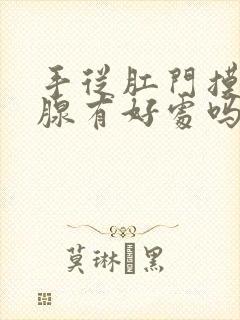 手從肛門摸
腺有好處嗎
莫琳·黑